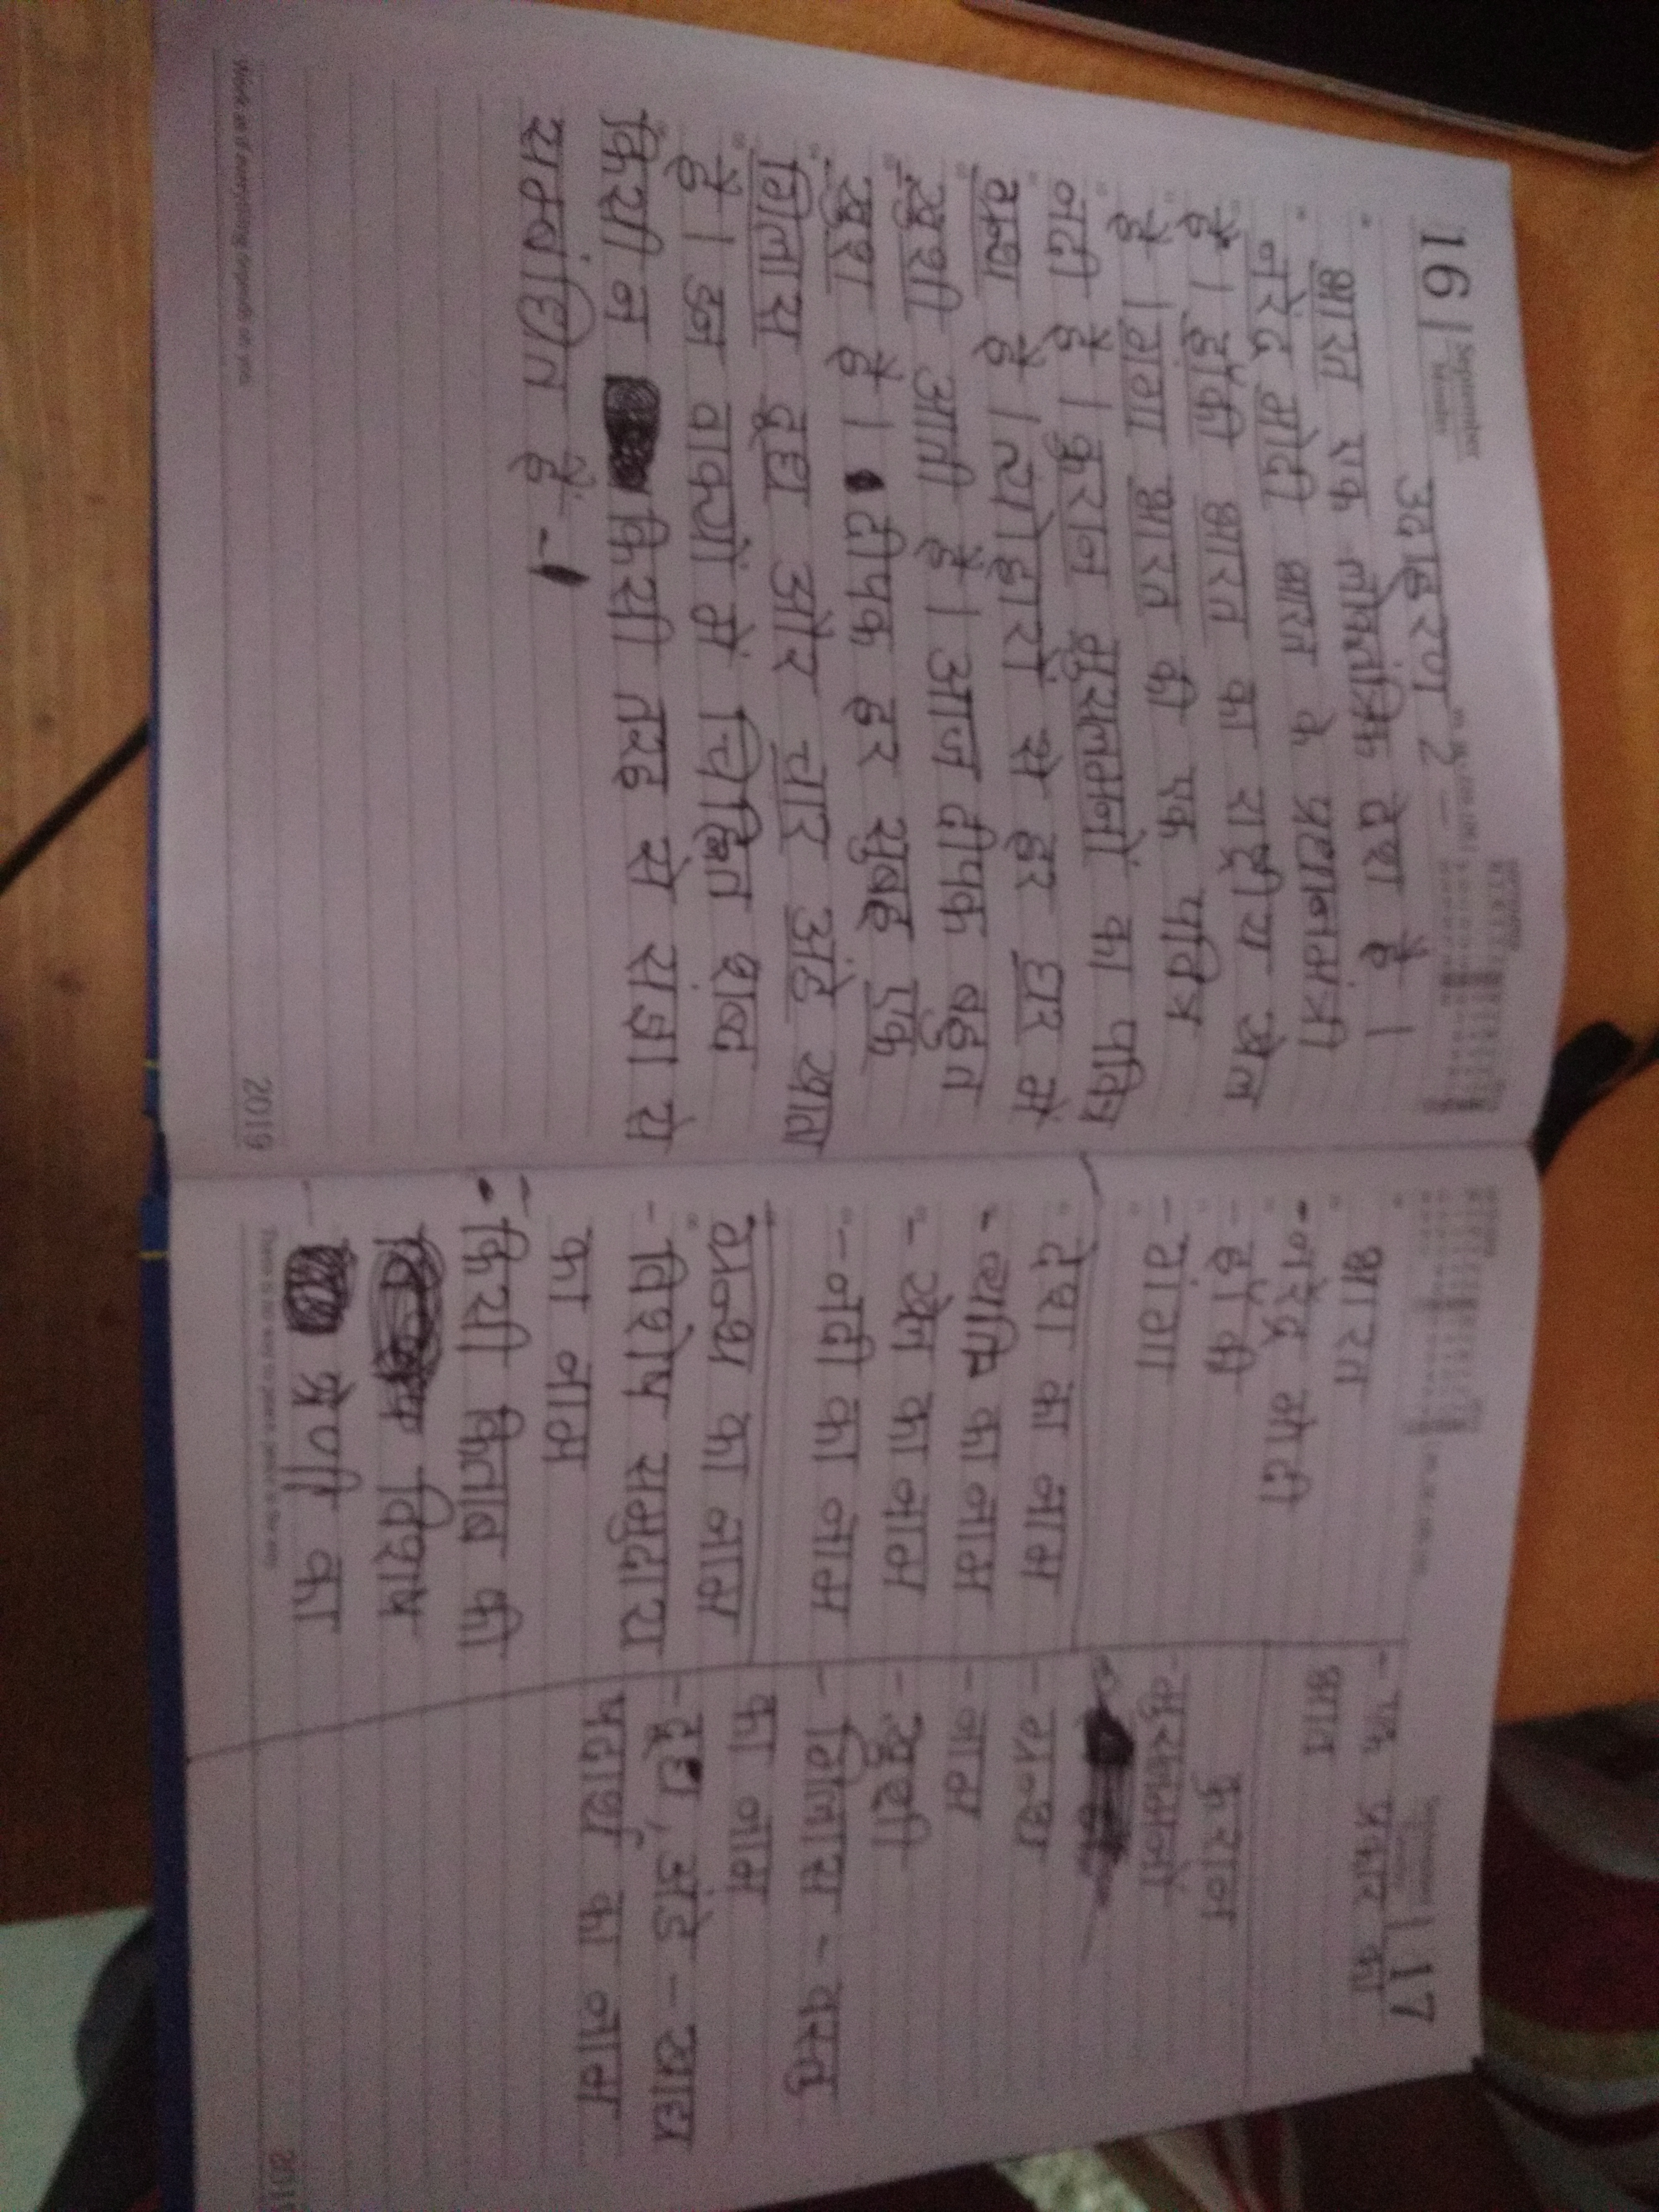 16 | September
Monday
उदाहरण 2 -
भारत एक लोकतंत्रिक देश है।
नरेंद्र मोदी भारत के प्रधानमंत्री
है। हॉकी भारत का राष्ट्रीय खेल
है। गंगा भारत की एक पवित्र
नदी है। कुरान मुसलमानों का पवित्र
ग्रन्थ है। त्योहारों से हर घर में
खुशी आती है। आज दीपक बहुत
खुश है। दीपक हर सुबह एक
गिलास दूध और चार अंडे खाता
है। इन वाक्यों में चिन्हित शब्द
किसी न किसी तरह से संज्ञा से
सम्बंधित हैं -
Work as if everything depends on you.
2019
September | 17
भारत
- नरेंद्र मोदी
- हॉकी
- गंगा
देश का नाम
- व्यक्ति का नाम
- खेल का नाम
- नदी का नाम
ग्रन्थ का नाम
- विशेष समुदाय
का नाम
- किसी किताब की
विशेष
श्रेणी का
- एक प्रकार का
भाव
कुरान
मुसलमानों
- ग्रन्थ
- नाम
- खुशी
- गिलास - वस्तु
का नाम
- दूध, अंडे - खाद्य
पदार्थ का नाम
2019